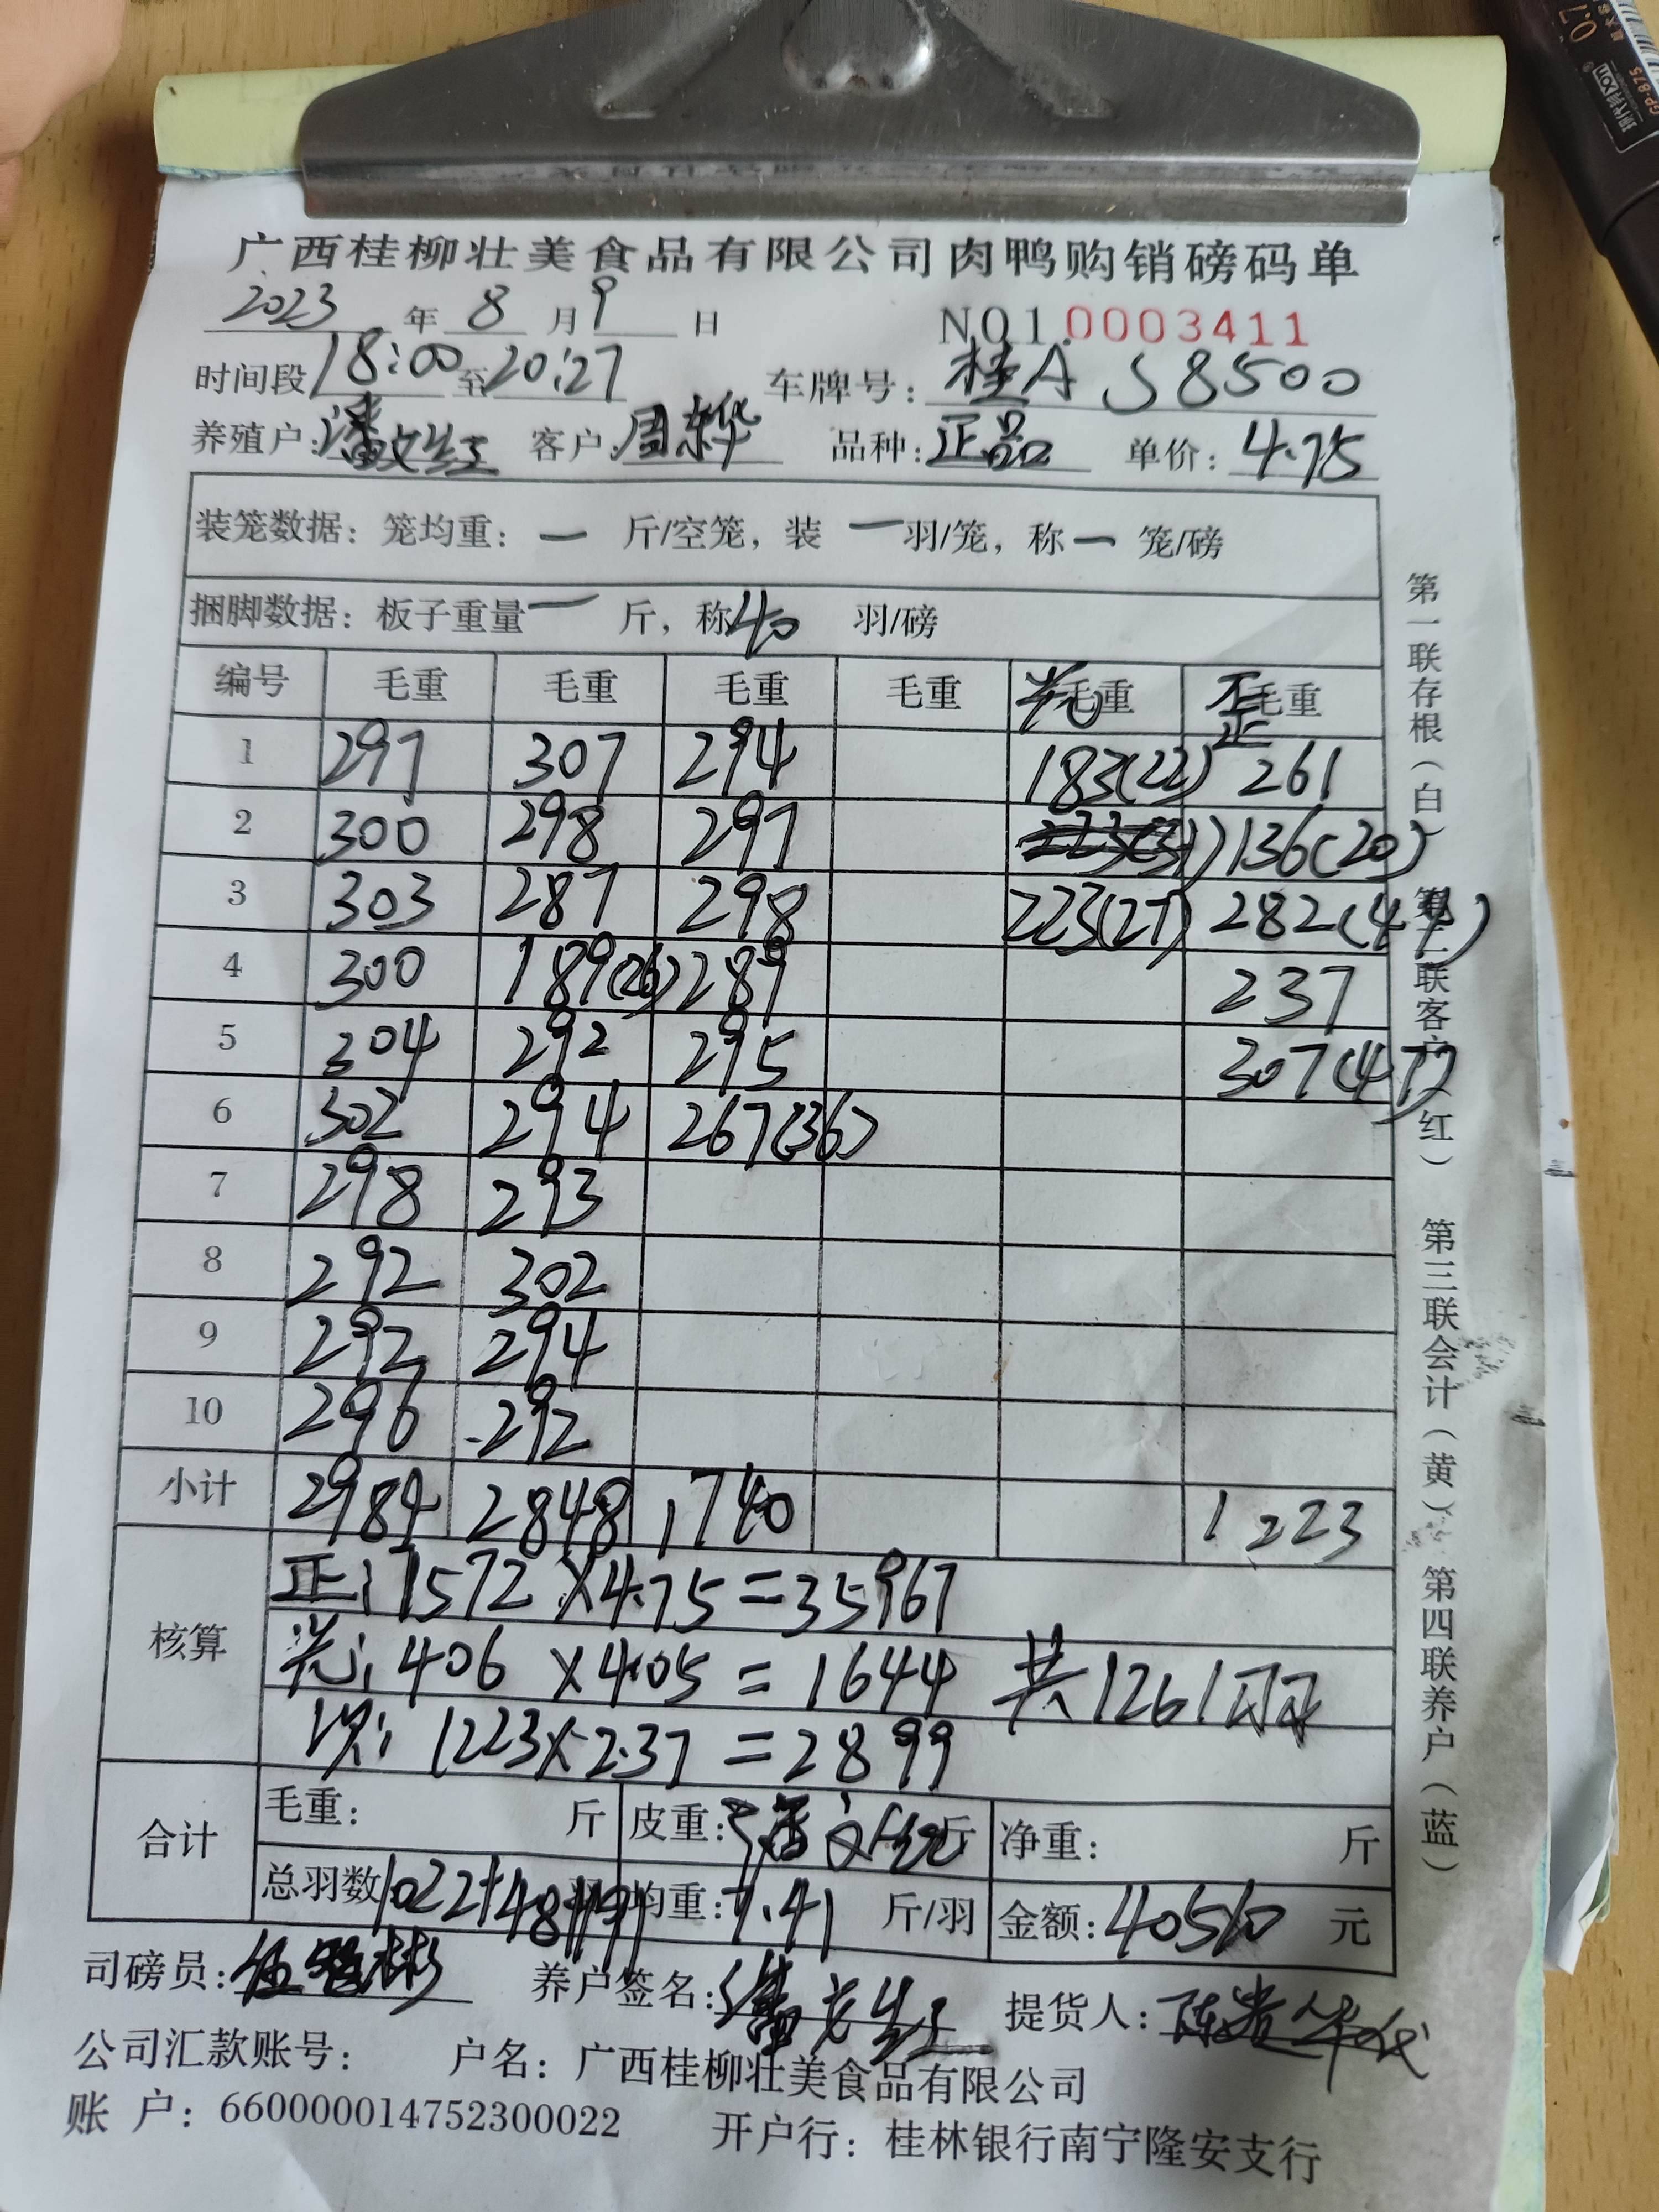 广西桂柳壮美食品有限公司肉鸭购销磅码单
2023 年 8 月 9 日 NO1.0003411
时间段 18:00 至 20:27 车牌号: 桂A S8500
养殖户: 潘文红 客户: 周东华 品种: 正品 单价: 4.75
装笼数据: 笼均重: 一 斤/空笼, 装 一 羽/笼, 称 一 笼/磅
捆脚数据: 板子重量 一 斤, 称 40 羽/磅
编号 毛重 毛重 毛重 毛重 光 毛重 不正 毛重
1 297 307 294 183(22) 261
2 300 298 297 223(31) 136(20)
3 303 287 298 223(27) 282(44)
4 300 189(26) 289 237
5 304 292 295 307(47)
6 302 294 267(36)
7 298 293
8 292 302
9 292 294
10 296 292
小计 2984 2848 1740 1223
核算
正: 7572 × 4.75 = 35967
光: 406 × 4.05 = 1644 共1261羽
次: 1223 × 2.37 = 2899
合计
毛重: 斤 皮重: 潘文红 斤 净重: 斤
总羽数 1022+48+191 均重: 7.41 斤/羽 金额: 40510 元
司磅员: 养户签名: 潘文红 提货人: 陈贵华代
公司汇款账号: 户名: 广西桂柳壮美食品有限公司
账 户: 660000014752300022 开户行: 桂林银行南宁隆安支行
第一联存根(白) 第二联客户(红) 第三联会计(黄) 第四联养户(蓝)
0.7
GP-875